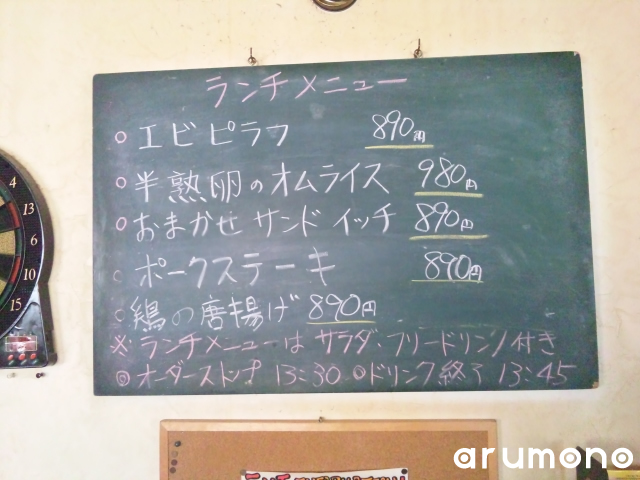 ランチメニュー
○ エビピラフ 890円
○ 半熟卵のオムライス 980円
○ おまかせ サンドイッチ 890円
○ ポークステーキ 890円
○ 鶏の唐揚げ 890円
※ ランチメニューは サラダ・フリードリンク付き
◎オーダーストップ 13:30 ◎ドリンク終了 13:45
4
13
6
10
15
arumono